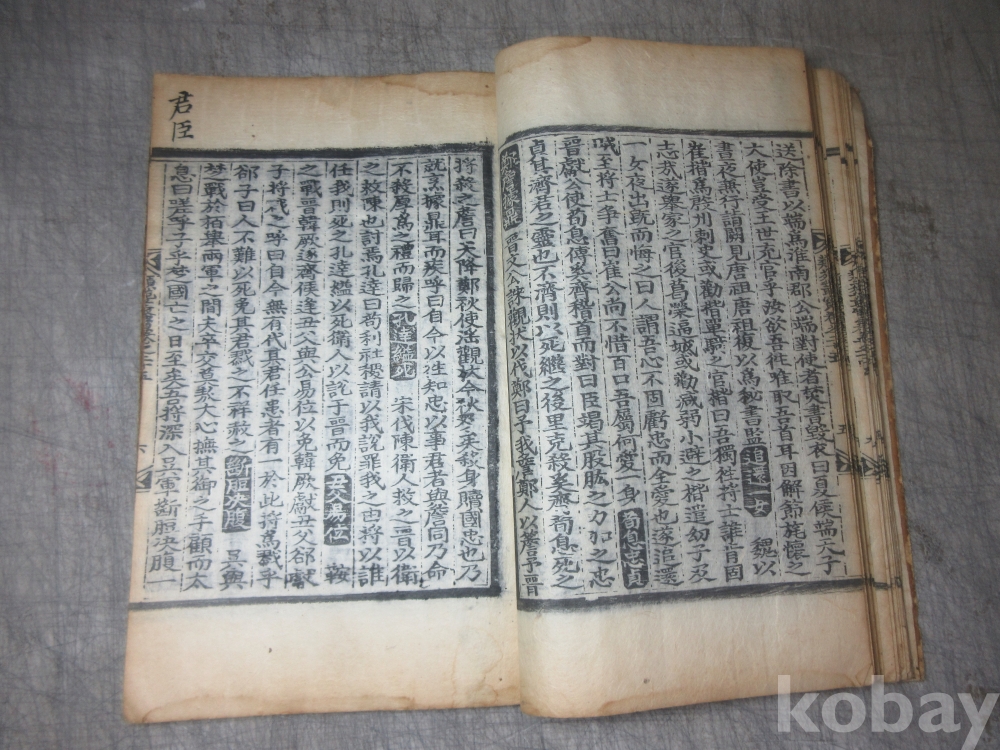 送除書以端爲淮南郡公端對使者焚書毀衣曰夏侯端天子
大使豈堂王世充官乎汝欲吾徃唯取吾首耳因解節旄懷之
晝夜無行請闕見唐祖唐祖復以爲秘書監 追還一女 魏以
崔楷爲殷州刺史或勸楷單騎之官楷曰吾獨徃將士誰肯固
志哉遂擧家之官後葛榮逼城或勸减弱小避之楷遣幼子及
一女夜出旣而悔之曰人謂吾心不固虧忠而全愛也遂追還
賊至將士爭奮曰崔公尚不惜百口吾屬何愛一身 荀息忠貞
晋獻公使荀息傅奚齊稽首而對曰臣竭其股肱之力加之忠
貞其濟君之靈也不濟則以死繼之後里克殺奚齊荀息死之
晋文公誅觀狀以伐鄭曰予我詹鄭人以詹予晋
將殺之詹曰天降鄭秋使淫觀狀今秋 殺身贖國忠也乃
就烹據鼎耳而疾呼曰自今以往知忠以事君者與詹同乃命
不殺厚爲之禮而歸之 孔達縊死 宋伐陳衛人救之晋以衛
之救陳也討焉孔達曰苟利社稷請以我說罪我之由將以誰
任我則死之孔達縊以死衛人以說于晋而免 丑父易位 鞍
之戰晋韓厥逐齊侯逢丑父與公易位以免韓厥獻丑父郤獻
子將戮之呼曰自今無有代其君任患者有一於此將爲戮乎
郤子曰人不難以死免其君戮之不祥赦之 斷脰决腹 吳與
楚戰於栢擧兩軍之間夫卒交莫敖大心撫其御之手顧而太
息曰嗟乎子乎楚國亡之日至矣吾將深入吳軍斷脰决腹一
君臣